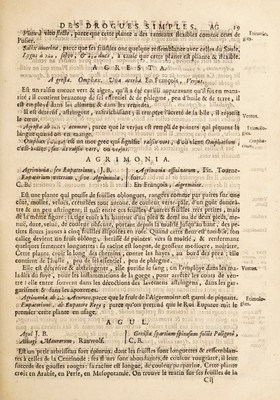 DES DROGUES SIMPLES, AG 19
l'Osier.
Salix amerina, parce que ses feuilles ont quelque ressemblance avec celles du Saule.
AGRESTA.
Agresta. Omphax. Uva acerba En François, Verjus.
Est un raisin encore vert & aigre, qu'on
rité; il contient beaucoup de sel essentiel & de phlegme, peu d'huile & de terre, il
est employé dans les alimens & dans les remedes.
Il est détersif, astringent, rafraîchissant; il tempere l'âcreté de la bile, il réjouit
le cœur.
parce que le verjus est rempli de pointes qui piquent la
langue quand on en mange.
est un mot grec qui signifie raisin vert, d'où vient Omphacium
AGRIMONIA.
Agrimonia, seu Eupatorium, J. B.
C. B.
Agrimonia officinarum, Pit. Tournef.
En François, aigremoine.
Est une plante qui pousse de feuilles oblongues, rangées comme par paires sur une
côte, moëlles, veluës, crenelées tout autour, de couleur verte-pâle, d'un goût douceâtre
& un peu astringent; il naît entre ces feuilles d'autres feuilles très petites, mais
de la même figure: sa tige croît à la hauteur d'un pied & demi ou de deux pieds, menuë,
dure, veluë, de couleur obscure, portant depuis la moitié jusqu'au haut, des petites
fleurs jaunes à cinq feuilles disposées en rose. Quand cette fleur est tombée, son
calice devient un fruit oblong, hérissé de pointes vers la moitié, & renfermant
quelques semences longuettes: sa racine est longue, de grosseur mediocre, noirâtre.
Cette plante croît le long des chemins, contre les hayes, au bord des prés; elle
contient de l'huile, peu de sel essentiel, peu de phlegme.
Elle est détersive & abstergente, elle purifie le sang; on l'employe dans les maladies
du foye, pour les inflammations de la gorge, pour arrêter les cours de ventre:
elle entre souvent dans les décoctions des lavemens astringens, dans les gargarismes
& dans les apozemes.
parce que le fruit de l'Aigremoine est garni de piquans.
Eupatorium, ab Eupatore Rege; parce qu'on prétend que le Roi Eupator mit le
premier cette plante en usage.
AGUL.
Agul J. B.
Alhagi Maurorum, Rauwolf.
Genista spartium spinosum foliis Polygoni,
C. B.
Est un petit arbrisseau fort épineux, dont les feuilles sont longuettes & ressemblantes
à celles de la Centinode; ses fleurs sont abondantes, de couleur rougeâtre; il leur
succede des gousses rouges: sa racine est longue, de couleur purpurine. Cette plante
croît en Arabie, en Perse, en Mesopotamie. On trouve le matin sur les feuilles de la
C ij